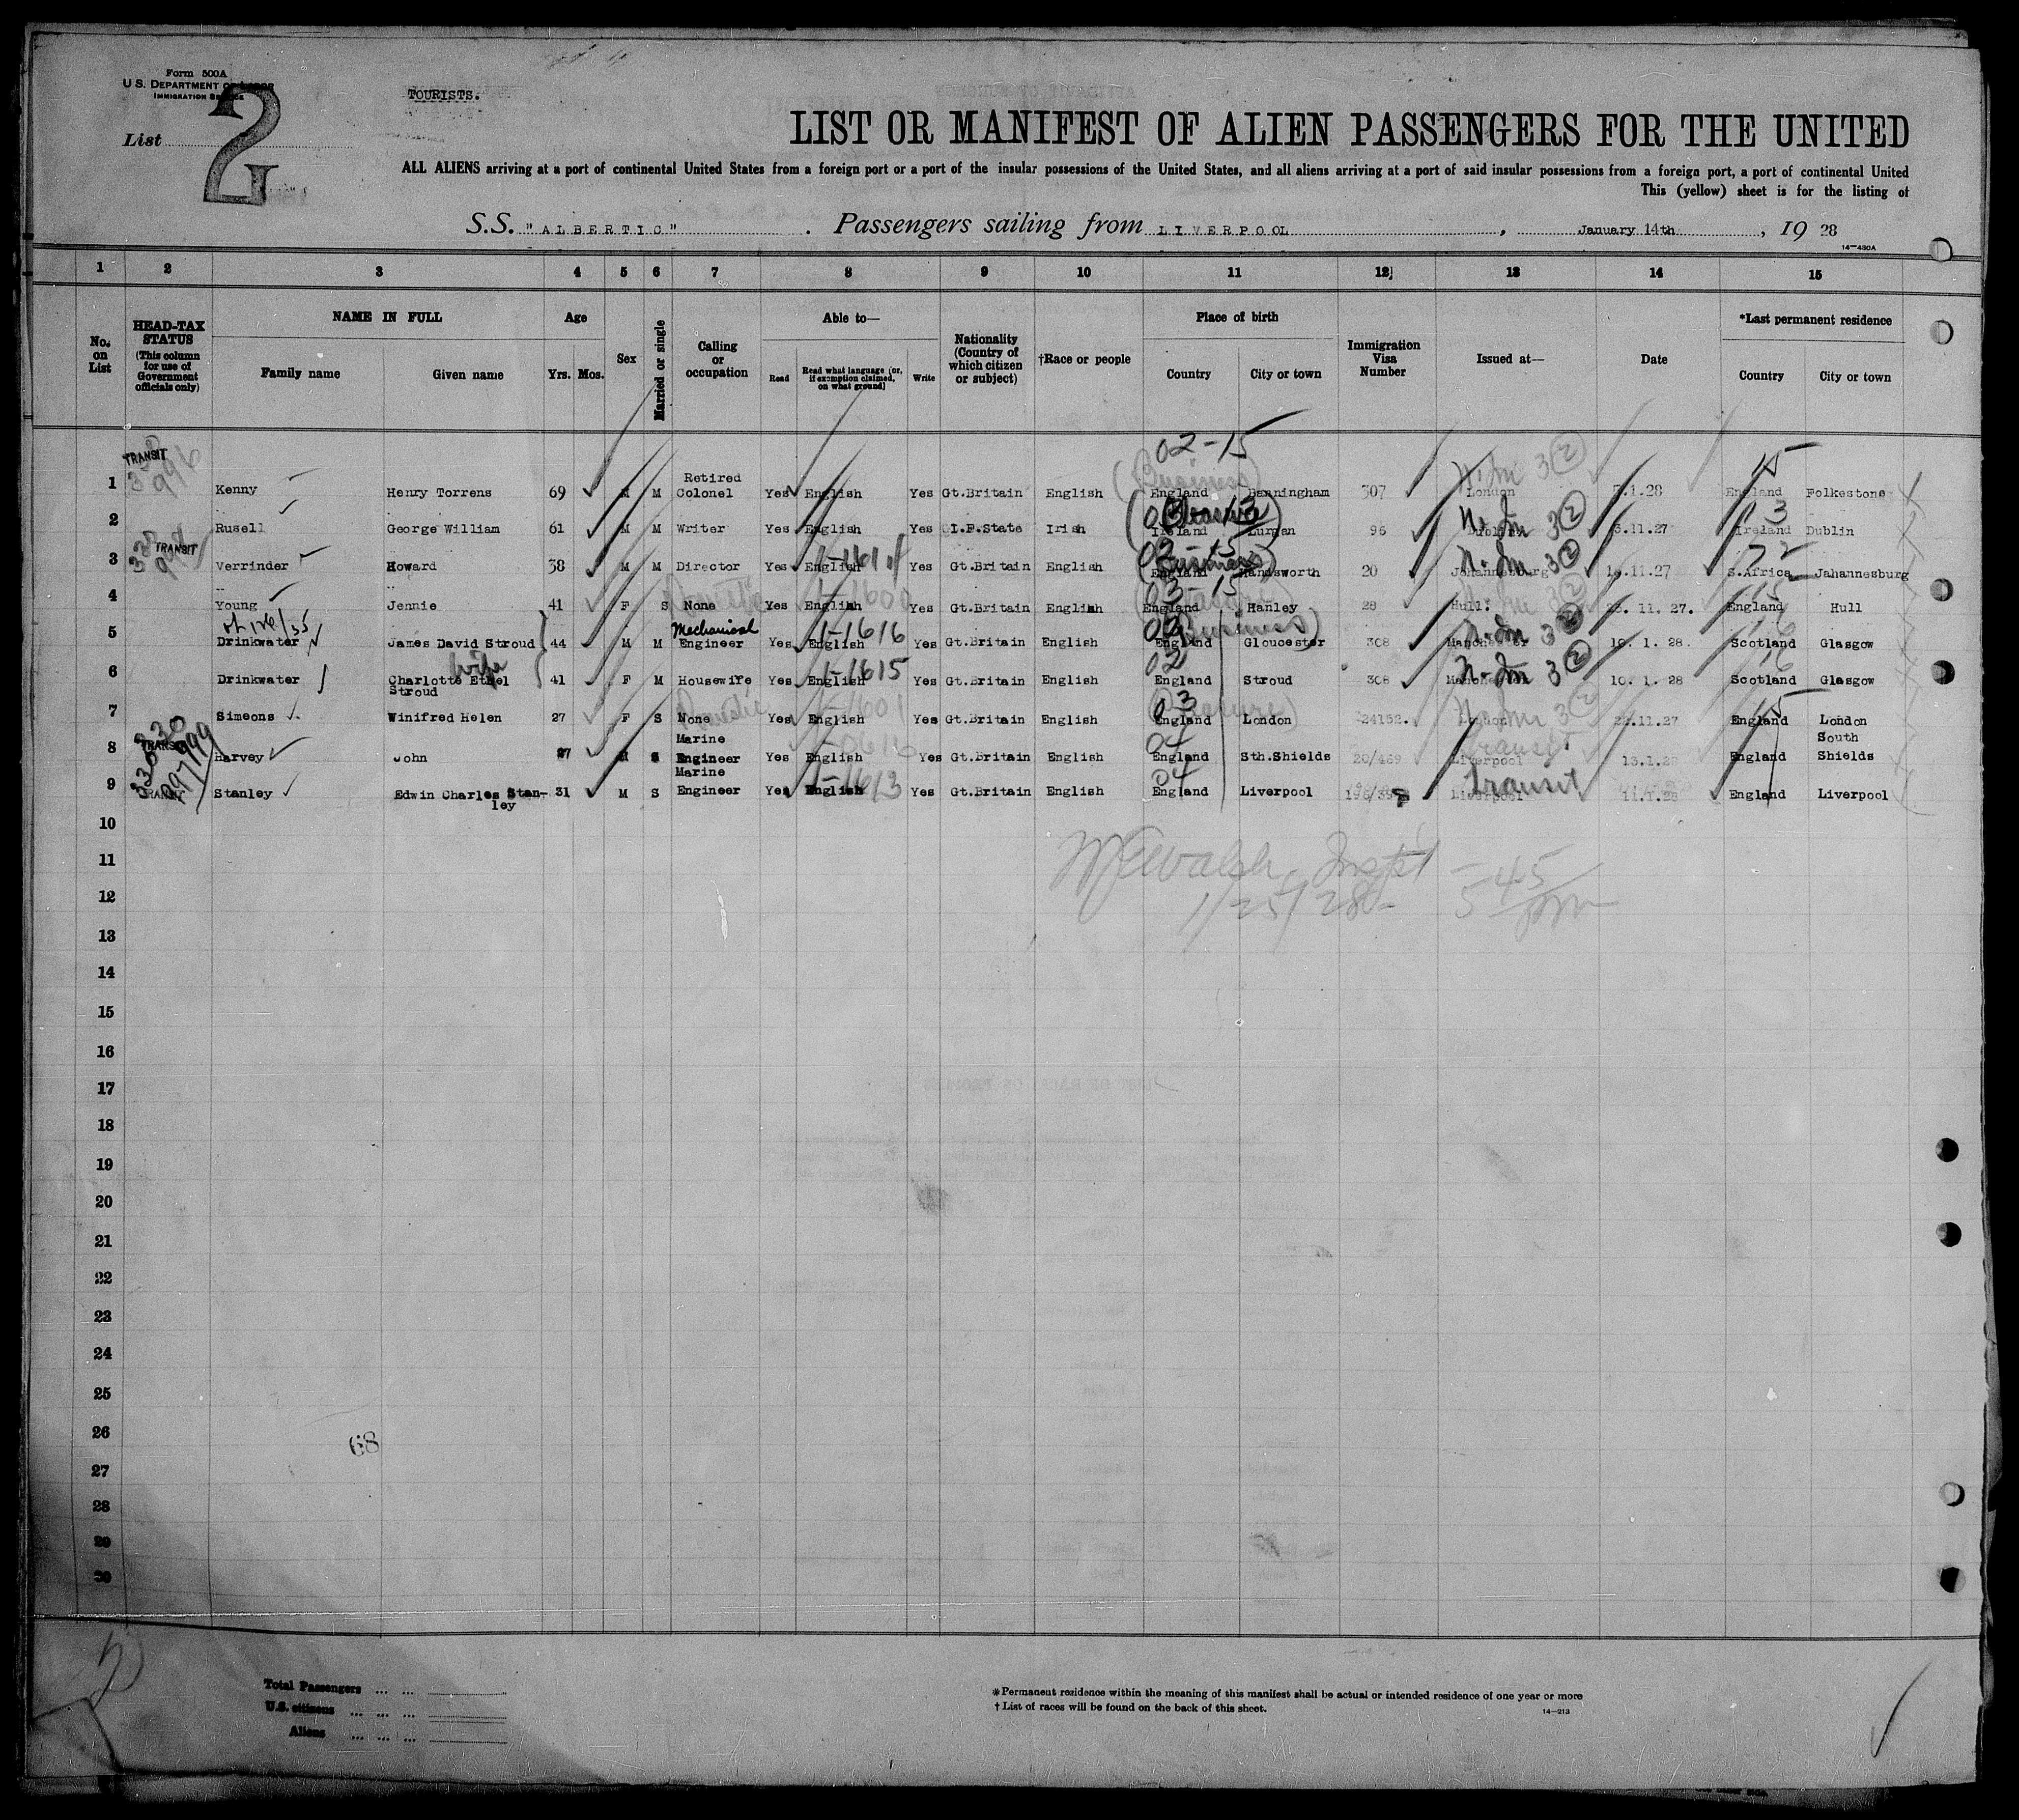 Form 500A
U.S. DEPARTMENT OF LABOR
IMMIGRATION SERVICE
TOURISTS.
List 2
LIST OR MANIFEST OF ALIEN PASSENGERS FOR THE UNITED
ALL ALIENS arriving at a port of continental United States from a foreign port or a port of the insular possessions of the United States, and all aliens arriving at a port of said insular possessions from a foreign port, a port of continental United
This (yellow) sheet is for the listing of
S.S. "ALBERTIC". Passengers sailing from LIVERPOOL, January 14th, 19 28
14-430A
1 2 3 4 5 6 7 8 9 10 11 12 13 14 15
No. on List
HEAD-TAX STATUS (This column for use of Government officials only)
NAME IN FULL
Family name Given name
Age Yrs. Mos.
Sex
Married or single
Calling or occupation
Able to—
Read Read what language (or, if exemption claimed, on what ground) Write
Nationality (Country of which citizen or subject)
†Race or people
Place of birth
Country City or town
Immigration Visa Number
Issued at—
Date
*Last permanent residence
Country City or town
02-15
TRANSIT
1 Kenny Henry Torrens 69 M M Retired Colonel Yes English Yes Gt.Britain English (Business) England 307 London .1.28 15 England Folkestone
2 Rusell George William 61 M M Writer Yes English Yes I.F.State Irish Ireland Lurgan 96 N.Im 3(2) Dublin .11.27 3 Ireland Dublin
TRANSIT
3 Verrinder Howard 38 M M Director Yes English Yes Gt.Britain English 02-15 (Business) England Handsworth 20 N.Im 3(2) Johannesburg .11.27 72 S.Africa Jahannesburg
4 Young Jennie 41 F S None Yes English 1-1600 Yes Gt.Britain English 03-15 England Hanley 28 Hull. . 11. 27. 15 England Hull
5 Drinkwater James David Stroud 44 M M Mechanical Engineer Yes English 1-1616 Yes Gt.Britain English (Business) England Gloucester 308 N.Im 3(2) Manchester 10. 1. 28. 16 Scotland Glasgow
6 Drinkwater Charlotte Ethel Stroud wife 41 F M Housewife Yes English 1-1615 Yes Gt.Britain English 02 England Stroud 308 N.Im 3(2) Manchester 10. 1. 28 16 Scotland Glasgow
7 Simeons Winifred Helen 27 F S None Domestic Yes English 1-1601 Yes Gt.Britain English 03 England London 24152. N.Im 3(2) London .11.27 15 England London
8 Harvey John 27 M S Marine Engineer Yes English Yes Gt.Britain English 04 England Sth.Shields 20/469 Transit Liverpool 13.1.28 England South Shields
9 Stanley Edwin Charles Stanley 31 M S Marine Engineer Yes English 1-1613 Yes Gt.Britain English 04 England Liverpool Transit Liverpool 11.1.28 England Liverpool
10
11
12
1/25/28 - 5 45 pm
13
14
15
16
17
18
19
20
21
22
23
24
25
26
68
27
28
29
30
Total Passengers ... ...
U.S. citizens ... ... ...
Aliens ... ... ...
*Permanent residence within the meaning of this manifest shall be actual or intended residence of one year or more
†List of races will be found on the back of this sheet.
14-213